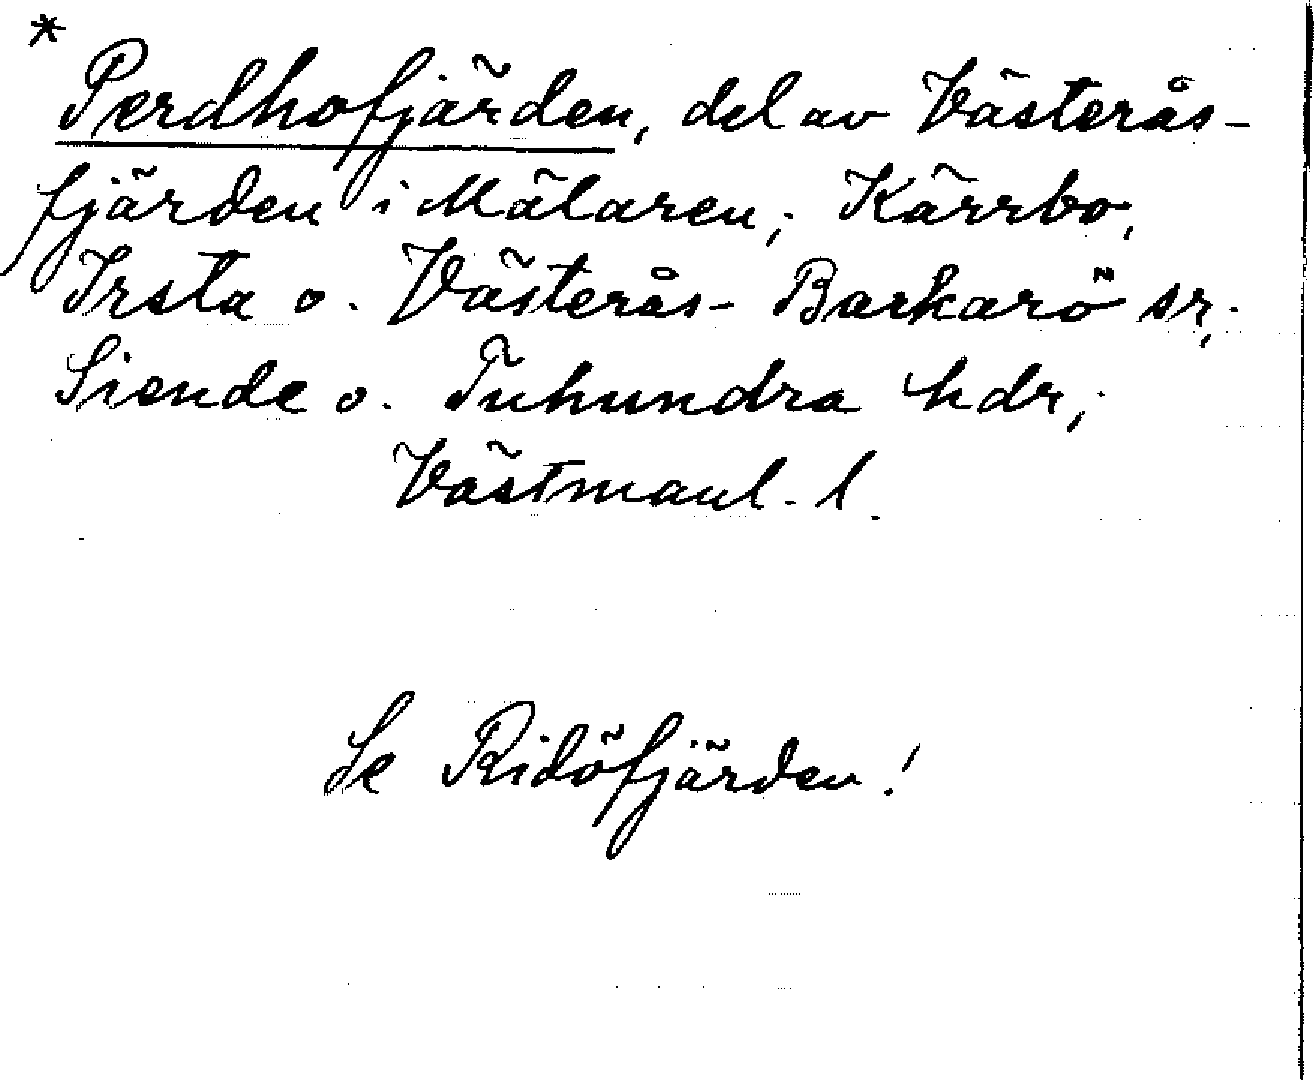 * Perdhofjärden, del av Västerås-
fjärden i Mälaren; Kärrbo,
Irsta o. Västerås-Barkarö sr,
Siende o. Tuhundra hdr,
Västmanl. l.
Se Ridöfjärden!